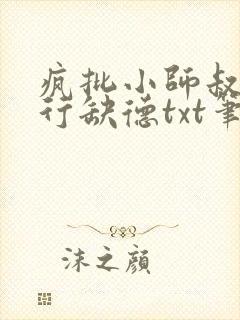 疯批小师叔
行缺德txt笔
沫之颜